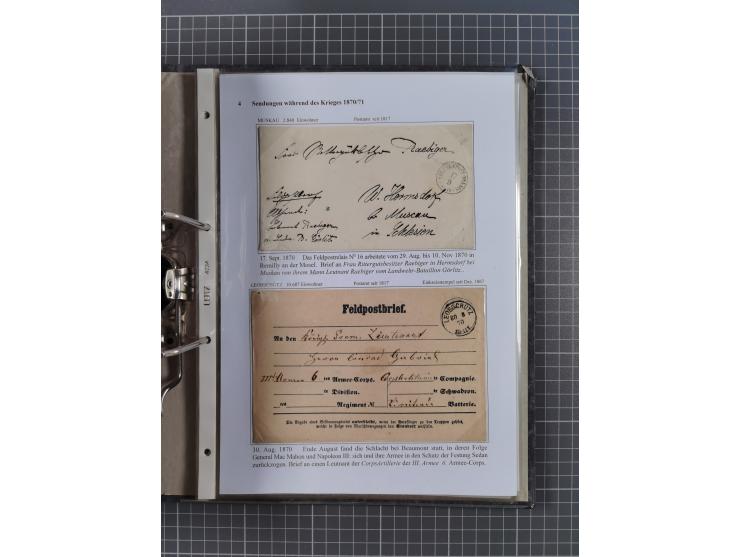 4 Sendungen während des Krieges 1870/71
MUSKAU 2.840 Einwohner Postamt seit 1817
Frau Rittergutsbesitzer Raebiger
W. Hermsdorf
b Muscau
in Schlesien
17. Sept. 1870 Das Feldpostrelais Nº 16 arbeitete vom 29. Aug. bis 10. Nov 1870 in
Remilly an der Mosel. Brief an Frau Rittergutsbesitzer Raebiger in Hermsdorf bei
Muskau von ihrem Mann Leutnant Raebiger vom Landwehr-Bataillon Görlitz.
LEOBSCHÜTZ 10.687 Einwohner Postamt seit 1817 Einkreisstempel seit Dez. 1867
Feldpostbrief.
LEOBSCHÜTZ
70
An den Königl. Prem. Lieutenant
Herrn Conrad Gabriel
6 ten Armee-Corps. te Compagnie.
te Division. te Schwadron.
tes Regiment № Batterie.
Die Angabe eines Bestimmungsortes unterbleibt, wenn der Empfänger zu den Truppen gehört,
welche in Folge von Marschbewegungen den Standort wechseln.
30. Aug. 1870 Ende August fand die Schlacht bei Beaumont statt, in deren Folge
General Mac Mahon und Napoleon III. sich und ihre Armee in den Schutz der Festung Sedan
zurückzogen. Brief an einen Leutnant der CorpsArtillerie der III. Armee 6. Armee-Corps.
LEITZ